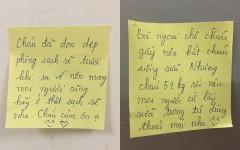 Cháu đã dọn dẹp
phòng sạch sẽ trước
khi ra về nên mong
mọi người cũng
hãy ở thật sạch sẽ
nha. Cháu cảm ơn ạ
Bà ngoại chê cháu
gầy nên bắt cháu
uống sữa. Nhưng
cháu 51 kg rồi nên
mọi người cứ lấy
sữa trong tủ dùng
thoải mái nha